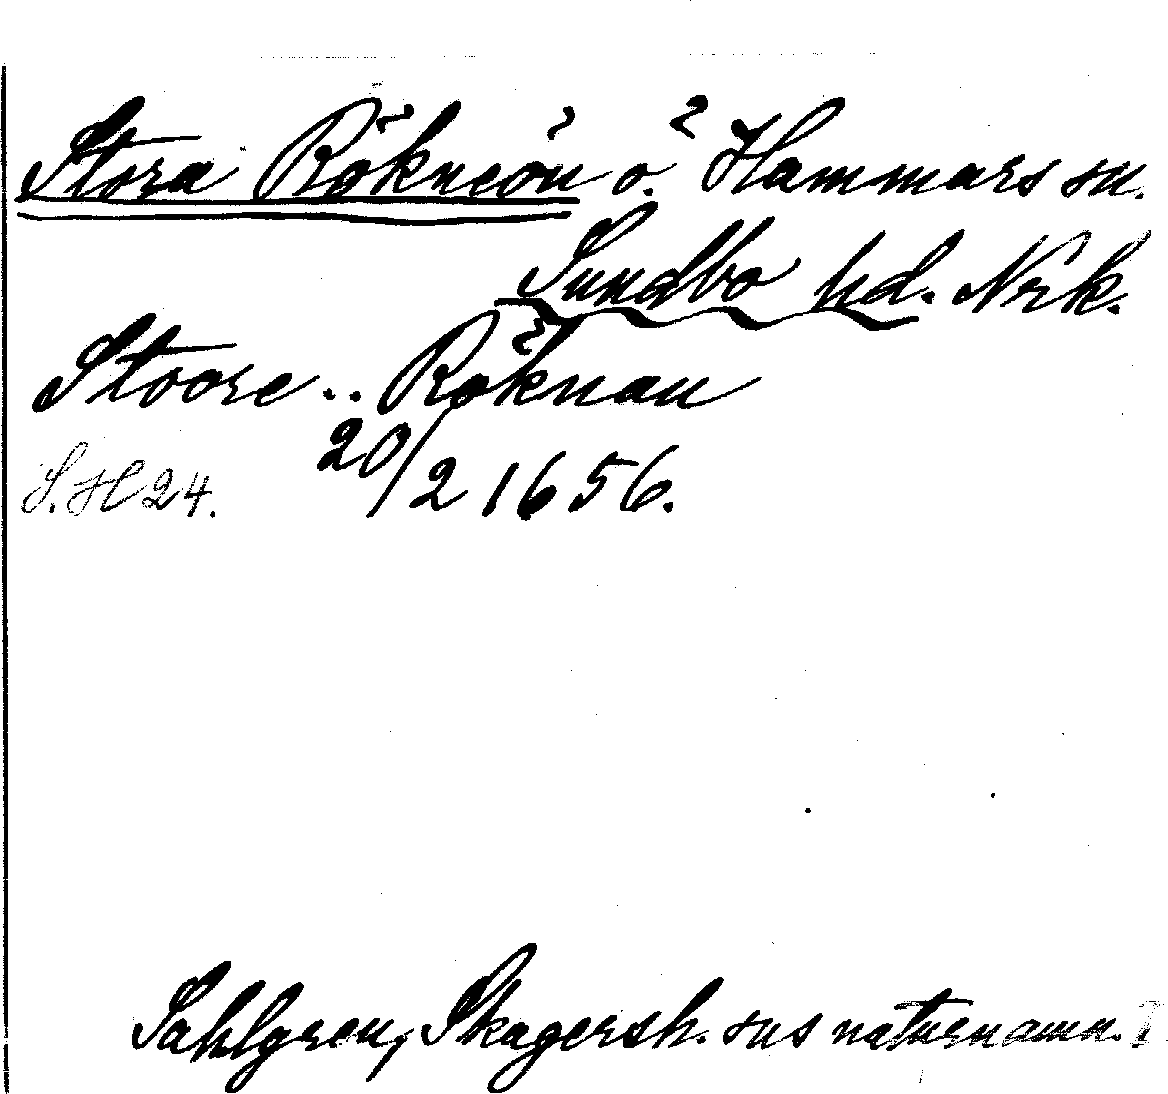 Stora Rökneön ö. Hammars sn.
Sundbo hd. Nrk.
Stoore .. Röknan
20/2 1656.
S. H 24.
Sahlgren, Skagersh. sns naturnamn.